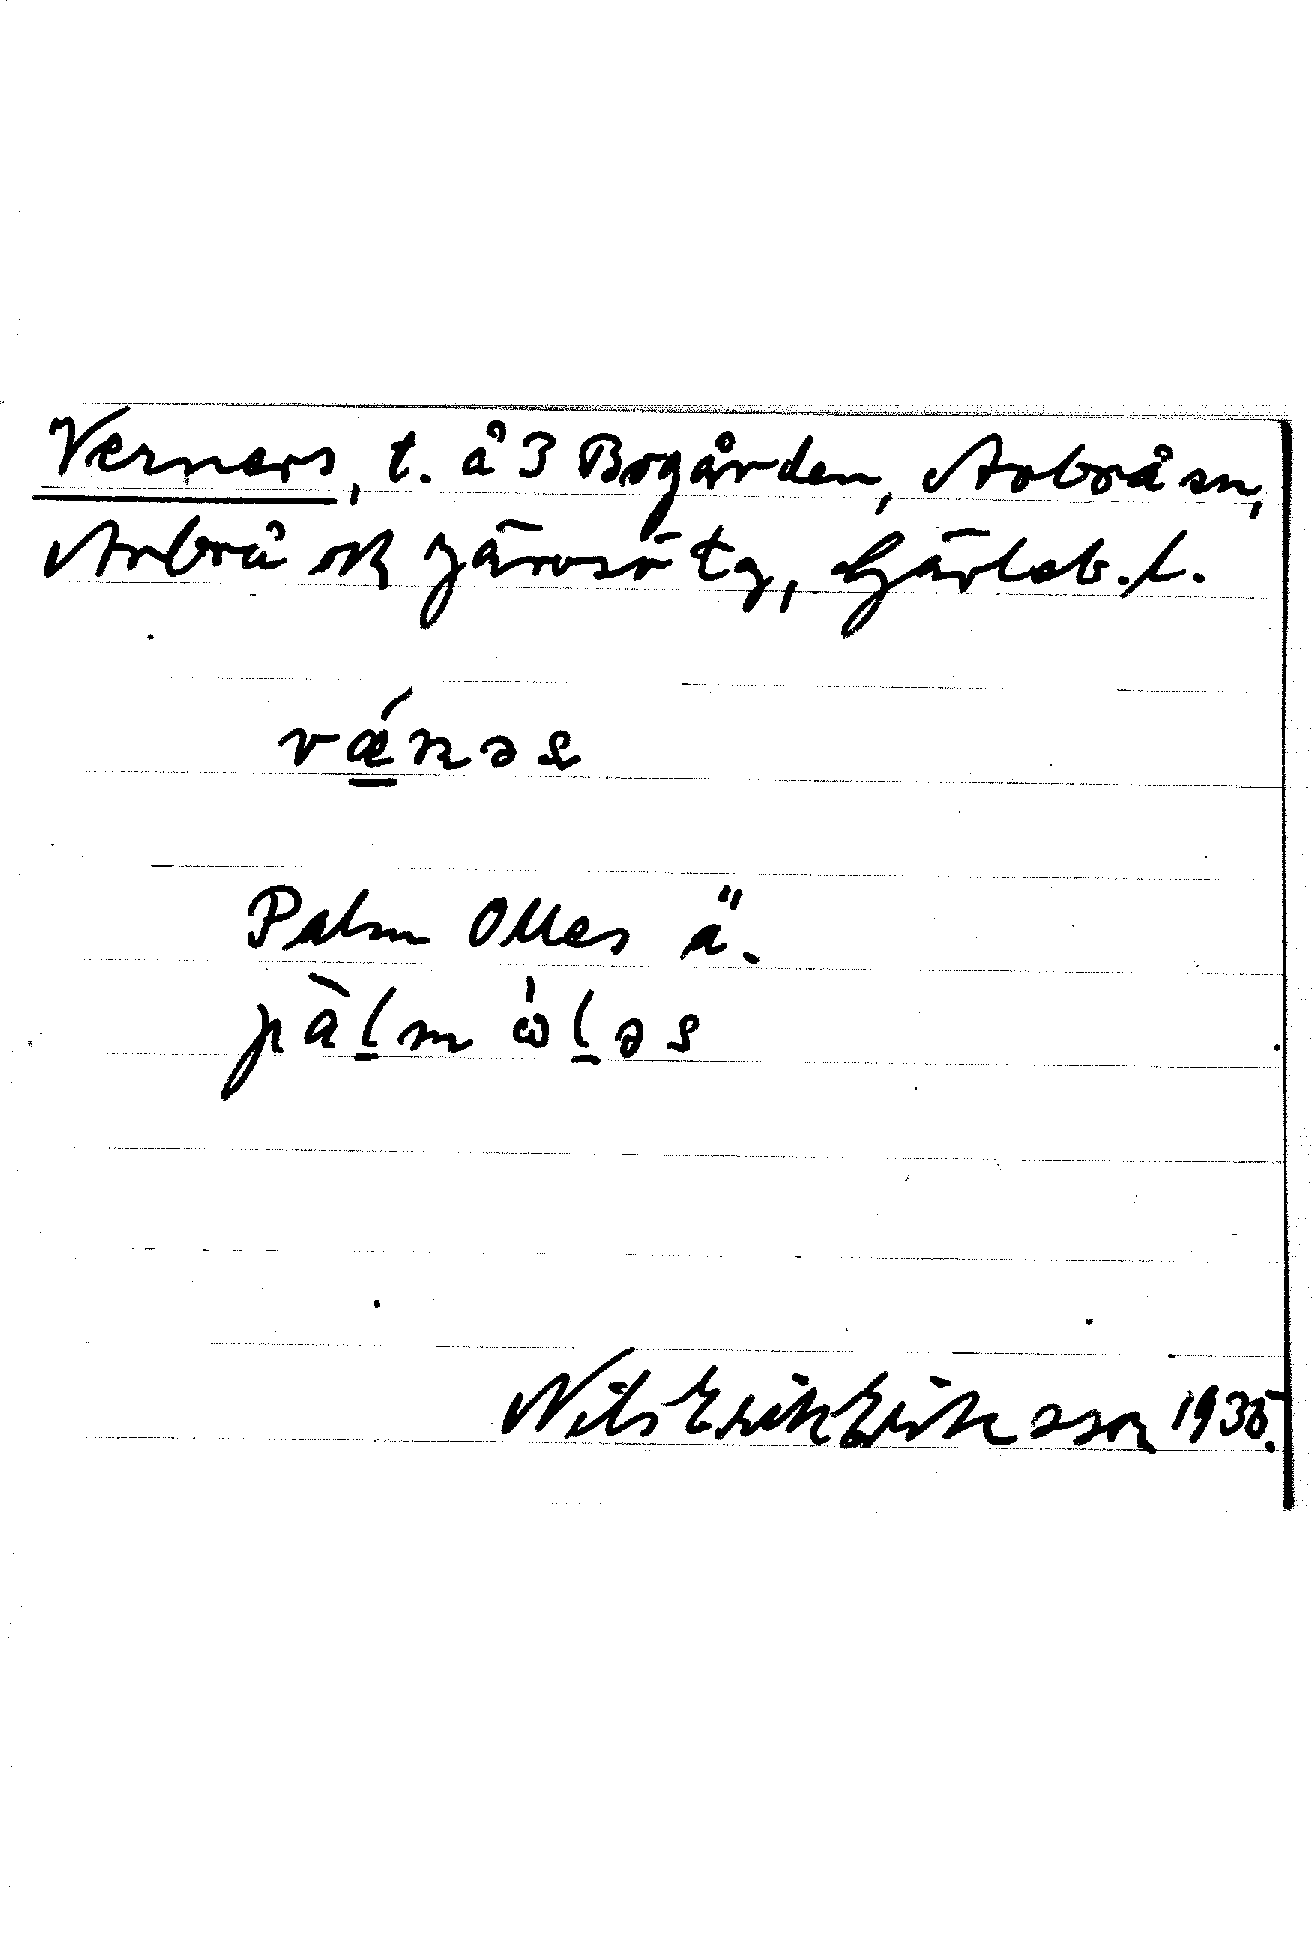 Verners, t. å 3 Bogården, Arbrå sn,
Arbrå ok Järvsö tg, Gävleb. l.
vǽnəs
Palm Olles ä.
pàlm ώləs
Nils Erik Eriksson 1935.